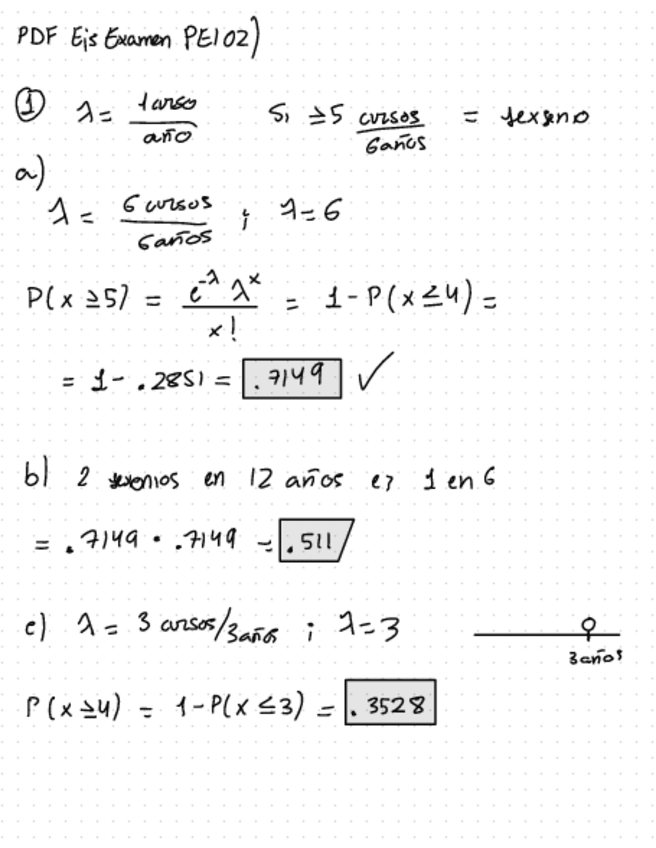 PDF Ejs Examen PE102)
① λ = 1 curso / año   Si ≥5 cursos / 6 años = sexenio
a)
λ = 6 cursos / 6 años ; λ=6
P(x ≥5) = e^-λ λ^x / x! = 1-P(x≤4) =
= 1- .2851 = .7149 ✓
b) 2 sexenios en 12 años es 1 en 6
= .7149 · .7149 = .511
c) λ = 3 cursos/3 años ; λ=3
3 años
P(x ≥4) = 1-P(x ≤3) = .3528